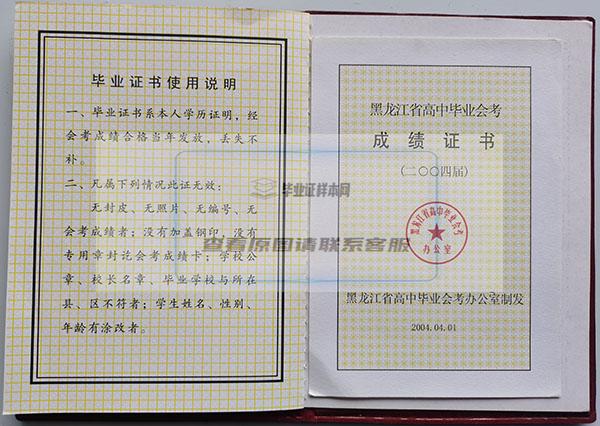 毕业证书使用说明
一、毕业证书系本人学历证明，经
会考成绩合格当年发放，丢失不
补。
二、凡属下列情况此证无效：
无封皮、无照片、无编号、无
会考成绩者；没有加盖钢印，没有
专用章封讫会考成绩卡；学校公
章、校长名章、毕业学校与所在
县、区不符者；学生姓名、性别、
年龄有涂改者。
毕业证样本网
查看原图请联系客服
黑龙江省高中毕业会考
成绩证书
（二〇〇四届）
黑龙江省高中毕业会考
办公室
黑龙江省高中毕业会考办公室制发
2004.04.01